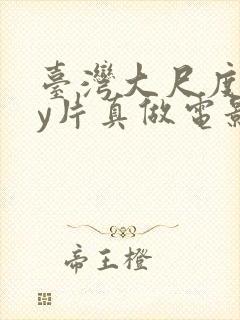 臺灣大尺度
y片真做電影
帝王橙